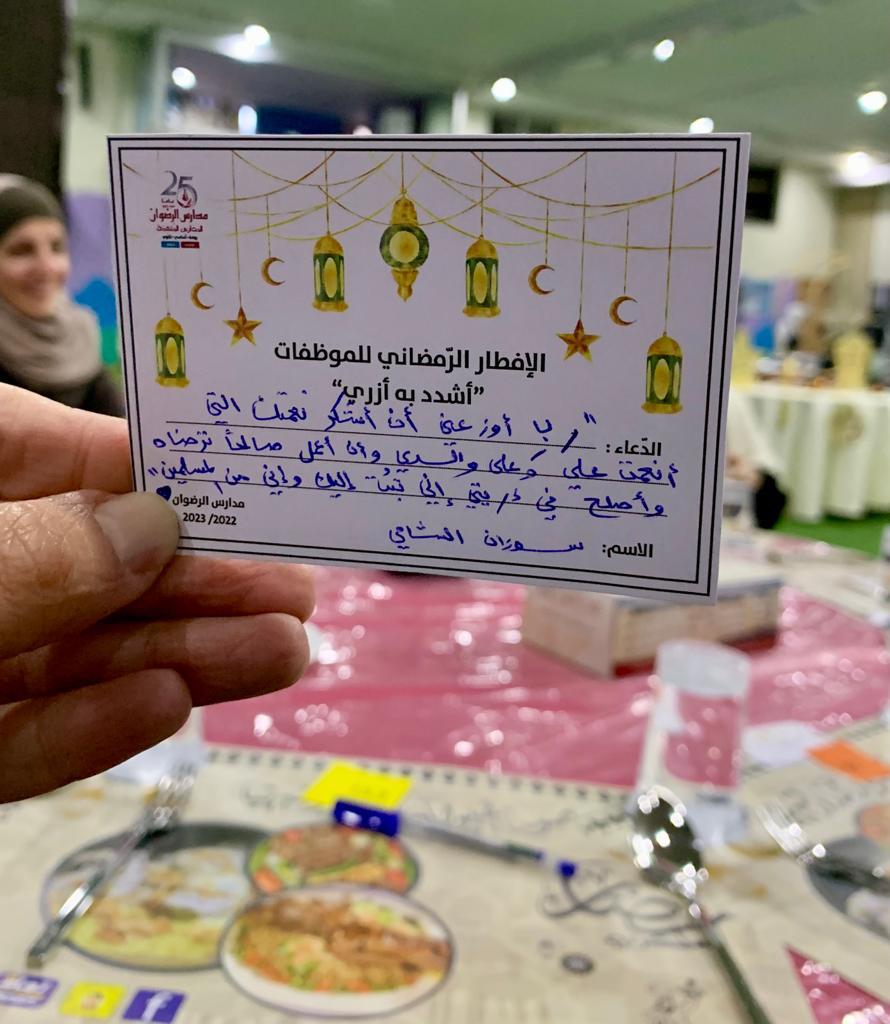 25
عاماً
مدارس الرضوان
الإفطار الرّمضاني للموظفات
”أشدد به أزري“
الدّعاء: "ربا أوزعني أن أشكر نعمتك التي
أنعمت علي وعلى والدي وأن أعمل صالحاً ترضاه
وأصلح في ذريتي إني تبت إليك وإني من المسلمين"
مدارس الرضوان
2023/2022
الاسم: سوزان الشامي
f